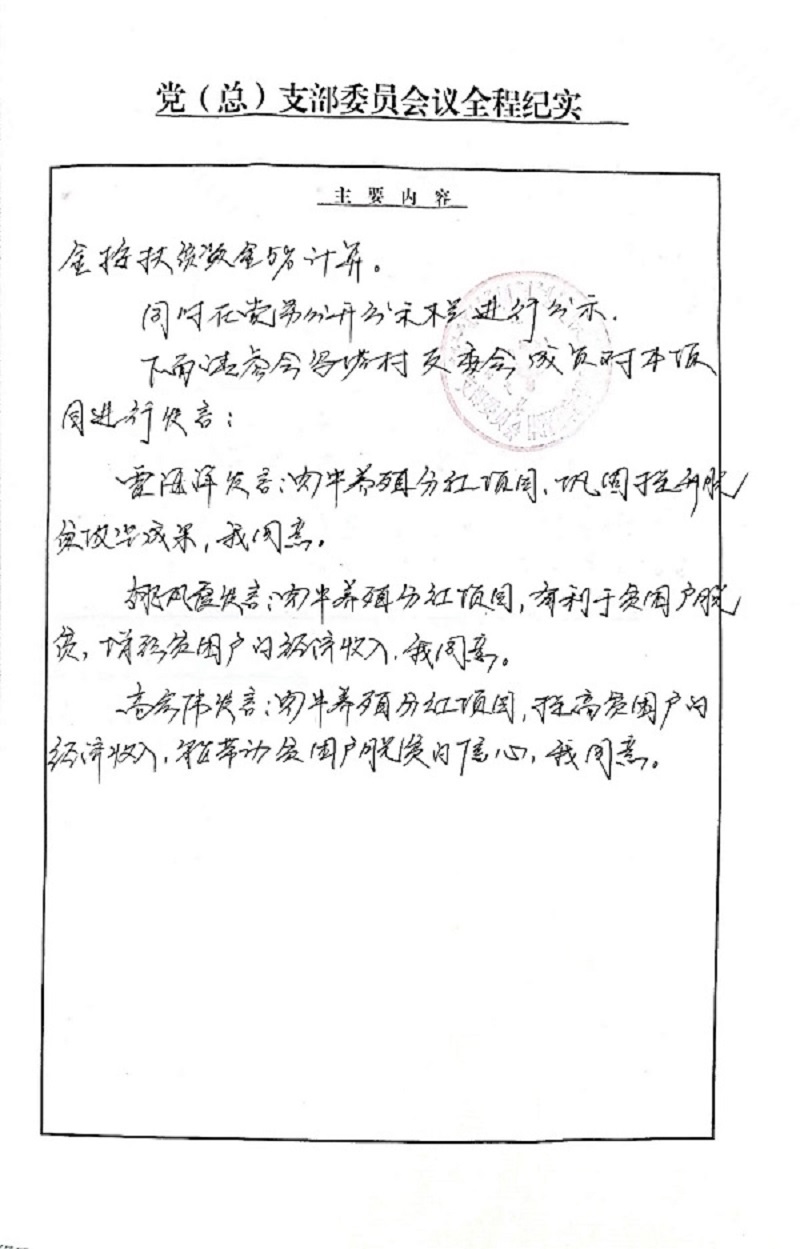 党（总）支部委员会议全程纪实
主要内容
金按扶贫资金5%计算。
同时在党务公开公示栏进行公示.
下面请参会 村支委会成员对本项
目进行发言：
雷海洋发言：肉牛养殖分红项目，巩固提升脱
贫攻坚成果，我同意。
发言：肉牛养殖分红项目，有利于贫困户脱
贫，增强贫困户的经济收入，我同意。
高宏伟发言：肉牛养殖分红项目，提高贫困户的
经济收入，带动贫困户脱贫的信心，我同意。